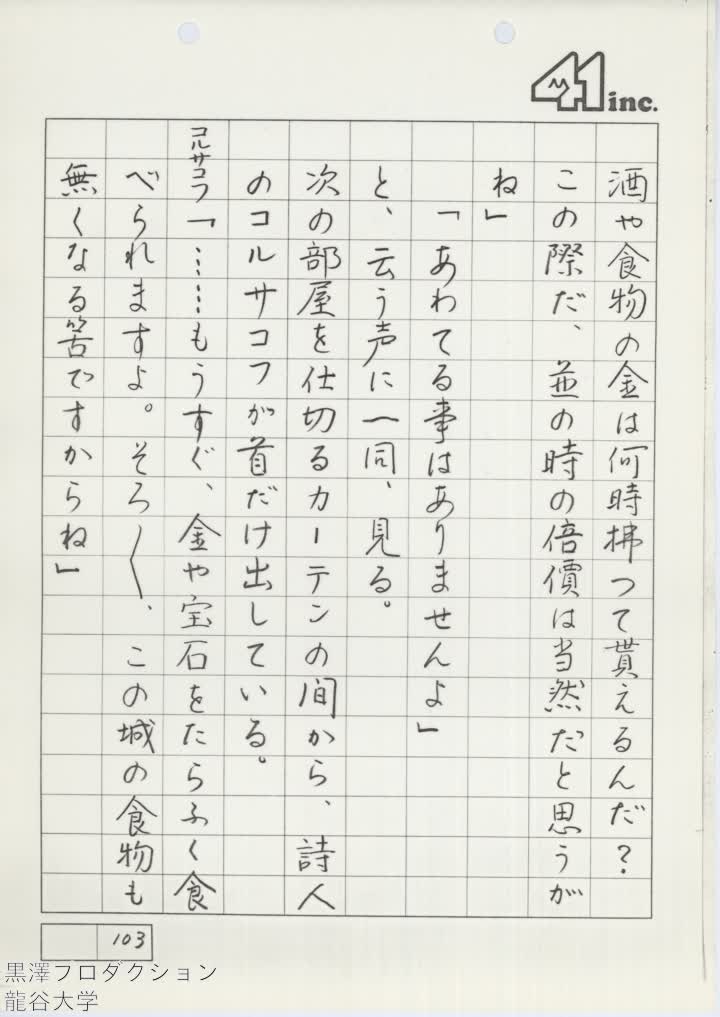 41 inc.
酒や食物の金は何時拂つて貰えるんだ?
この際だ、並の時の倍價は当然だと思うが
ね」
「あわてる事はありませんよ」
と、云う声に一同、見る。
次の部屋を仕切るカーテンの間から、詩人
のコルサコフが首だけ出している。
コルサコフ「……もうすぐ、金や宝石をたらふく食
べられますよ。そろ〱、この城の食物も
無くなる筈ですからね」
103
黒澤プロダクション
龍谷大学